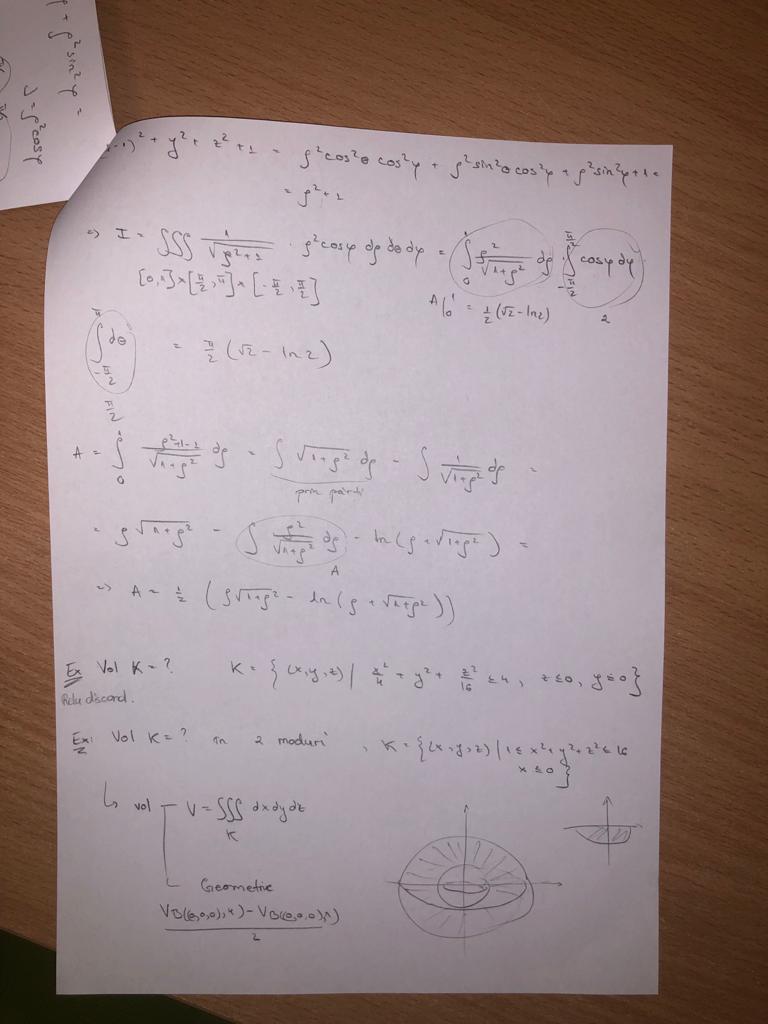 ρ + ρ² sin² φ =
J = ρ² cos φ
-1)² + y² + z² + 1 = ρ² cos² θ cos² φ + ρ² sin² θ cos² φ + ρ² sin² φ + 1 =
= ρ² + 1
=> I = ∭ 1/√(ρ²+1) · ρ² cos φ dρ dθ dφ = ∫₀¹ ρ²/√(1+ρ²) dρ ∫_{-π/2}^{π/2} cos φ dφ
[0,1] × [π/2, π] × [-π/2, π/2]
A|₀¹ = 1/2 (√2 - ln 2)
2
∫_{-π/2}^{π} dθ = π/2 (√2 - ln 2)
π/2
A = ∫₀¹ (ρ²+1-1)/√(1+ρ²) dρ = ∫ √(1+ρ²) dρ - ∫ 1/√(1+ρ²) dρ =
prin părți
= ρ √(1+ρ²) - ∫ ρ²/√(1+ρ²) dρ - ln(ρ + √(1+ρ²)) =
A
=> A = 1/2 (ρ√(1+ρ²) - ln(ρ + √(1+ρ²)))
Ex Vol K = ? K = { (x,y,z) | x²/4 + y² + z²/16 ≤ 4, z ≤ 0, y ≤ 0 }
discord.
Ex: Vol K = ? in 2 moduri, K = { (x,y,z) | 1 ≤ x² + y² + z² ≤ 16
2
x ≤ 0 }
vol V = ∭ dx dy dz
K
Geometric
V B((0,0,0),4) - V B((0,0,0),1)
2